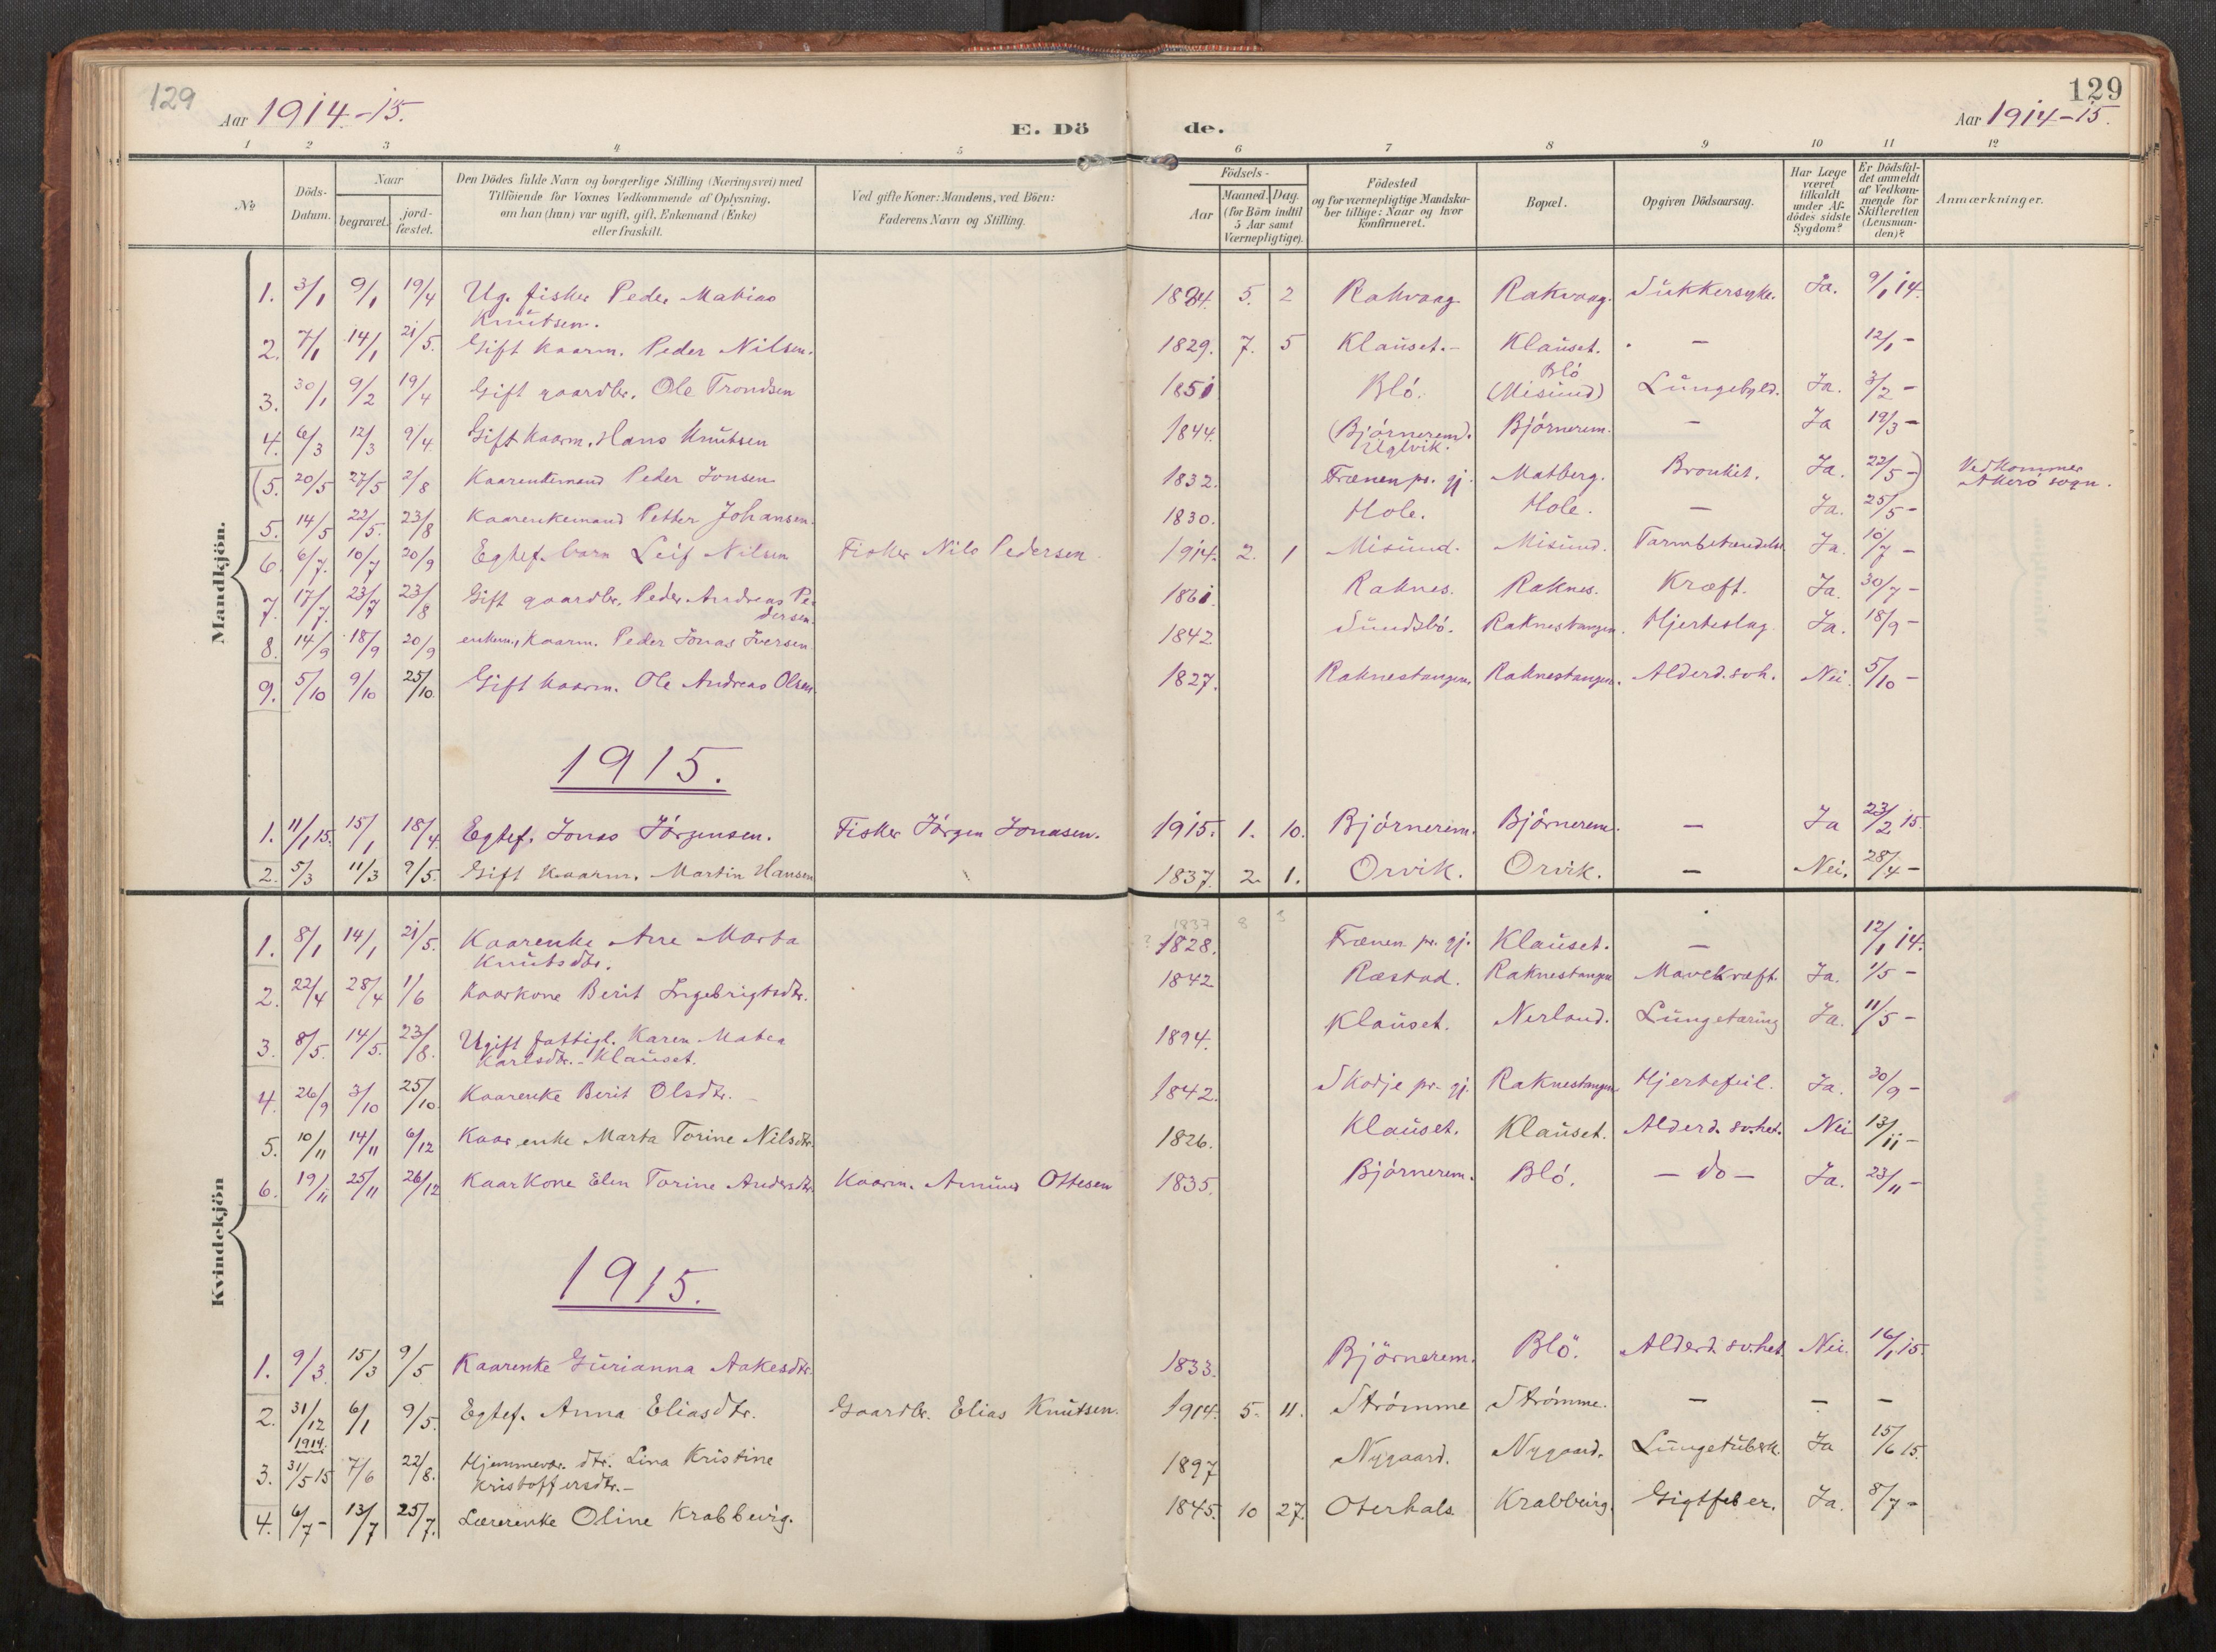 129
Aar 1914-15.
E. Döde.
129
Aar 1914-15.
1 2 3 4 5 6 7 8 9 10 11 12
No
Döds-Datum.
Naar
begravet.
jord-fæstet.
Den Dödes fulde Navn og borgerlige Stilling (Næringsvei) med
Tilföiende for Voxnes Vedkommende af Oplysning,
om han (hun) var ugift, gift, Enkemand (Enke)
eller fraskilt.
Ved gifte Koner: Mandens, ved Börn:
Faderens Navn og Stilling.
Födsels-
Aar
Maaned. Dag.
(for Börn indtil
5 Aar samt
Værnepligtige).
Födested
og for værnepligtige Mandska-
ber tillige: Naar og hvor
konfirmeret.
Bopæl.
Opgiven Dödsaarsag.
Har Læge
været
tilkaldt
under Af-
dödes sidste
Sygdom?
Er Dödsfal-
det anmeldt
af Vedkom-
mende for
Skifteretten
(Lensman-
den)?
Anmærkninger.
Mandkjön.
1. 3/1 9/1 19/4 Ug. fisker Peder Matias Knutsen. 1894. 5. 2 Rakvaag Rakvaag. Sukkersyke. Ja. 9/1 14.
2. 7/1 14/1 21/5. Gift kaarm. Peder Nilsen. 1829. 7. 5 Klauset.- Klauset. - 12/1 -
3. 30/1 9/2 19/4 Gift gaardbr. Ole Trondsen 1851 Bló. Bló (Misund) Lungebyld. Ja. 3/2 -
4. 6/3 12/3 9/4 Gift kaarm. Hans Knutsen 1844. (Björnerem). Uglvik. Björnerem. - Ja 19/3 -
(5. 20/5 27/5 2/8 Kaarenkemand Peder Jonsen 1832. Frænen pr. gj. Matberg. Bronkit. Ja. 22/5 -) Vedkommer Akerö sogn.
5. 14/5 22/5. 23/8 Kaarenkemand Petter Johansen. 1830. Hole. Hole. - Ja. 25/5 -
6. 6/7. 10/7 20/9 Egtef. barn Leif Nilsen Fisker Nils Pedersen 1914. 2. 1 Misund. Misund. Tarmbetændelse Ja. 10/7 -
7. 17/7. 23/7 23/8 Gift gaardbr. Peder Andreas Pedersen. 1861. Raknes. Raknes. Kræft. Ja. 30/7 -
8. 14/9 18/9 20/9 enkem., Kaarm. Peder Jonas Iversen. 1842. Sundsbö. Raknestangen. Hjerteslag Ja. 18/9 -
9. 5/10 9/10 25/10. Gift kaarm. Ole Andreas Olsen. 1827. Raknestangen. Raknestangen. Alderd.svh. Nei. 5/10 -
1915.
1. 11/1 15. 15/1 18/4 Egtef. Jonas Jörgensen. Fisker Jörgen Jonasen. 1915. 1. 10. Björnerem. Björnerem. - Ja 23/2 15.
2. 5/3 11/3 9/5. Gift Kaarm. Martin Hansen 1837. 2. 1. Orvik. Orvik. - Nei. 28/4 -
Kvindekjön
1837 8 3
1. 8/1 14/1 21/5. Kaarenke Ane Marta Knutsdtr. ? 1828. Frænen pr. gj. Klauset. - 12/1 14.
2. 22/4 28/4 1/6 Kaarkone Berit Ingebrigtsdtr. 1842 Ræstad. Raknestangen Mavekræft. Ja. 1/5 -
3. 8/5. 14/5. 23/8. Ugift fattigl. Karen Matea Karlsdtr. - Klauset. 1894. Klauset. Nerland. Lungetæring Ja. 11/5 -
4. 26/9 3/10 25/10. Kaarenke Berit Olsdtr. - 1842. Skodje pr. gj. Raknestangen Hjertefeil. Ja. 30/9 -
5. 10/11 14/11 6/12 Kaar enke Marta Torine Nilsdtr. 1826. Klauset. Klauset. Alderd. sv.het. Nei 13/11 -
6. 19/11 25/11 26/12 Kaarkone Elen Torine Andersdtr. Kaarm. Amund Ottesen 1835. Björnerem. Bló. - do - Ja. 23/11 -
1915.
1. 9/3. 15/3 9/5 Kaarenke Gurianna Aakesdtr. 1833. Björnerem. Blö. Alderd. sv.het. Nei. 16/1 15.
2. 31/12 1914. 6/1 9/5. Egtef. Anna Eliasdtr. Gaardbr. Elias Knutsen. 1914. 5. 11. Strömme Strömme. - - -
3. 31/5 15 7/6 22/8. Hjemmevær. dtr. Lina Kristine Kristoffersdtr. - 1897 Nygaard. Nygaard. Lungetuberk. Ja 15/6 15.
4. 6/7 - 13/7 25/7. Lærerenke Oline Krabbeirg. 1845. 10 27. Oterhals Krabbeirg. Gigtfeber. Ja. 8/7 -